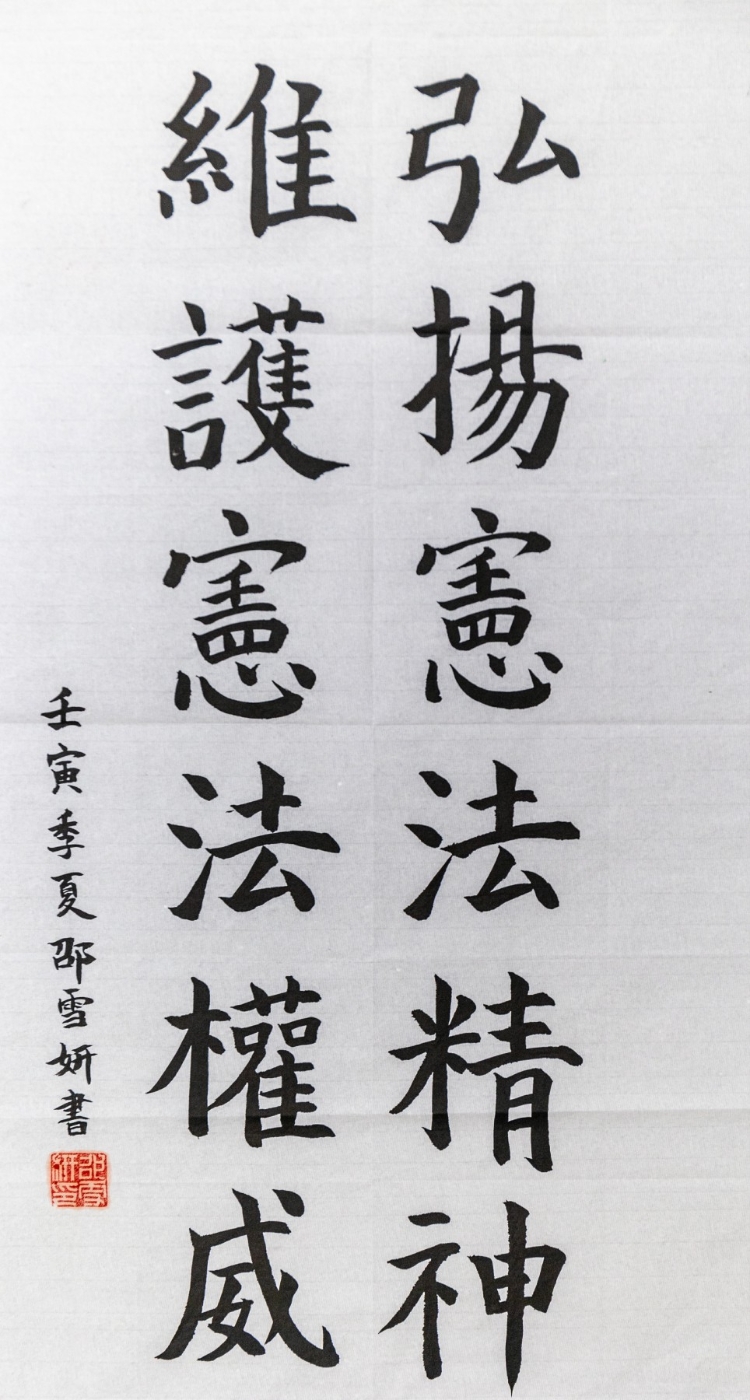 弘揚憲法精神
維護憲法權威
壬寅季夏邵雪妍書
邵雪妍印